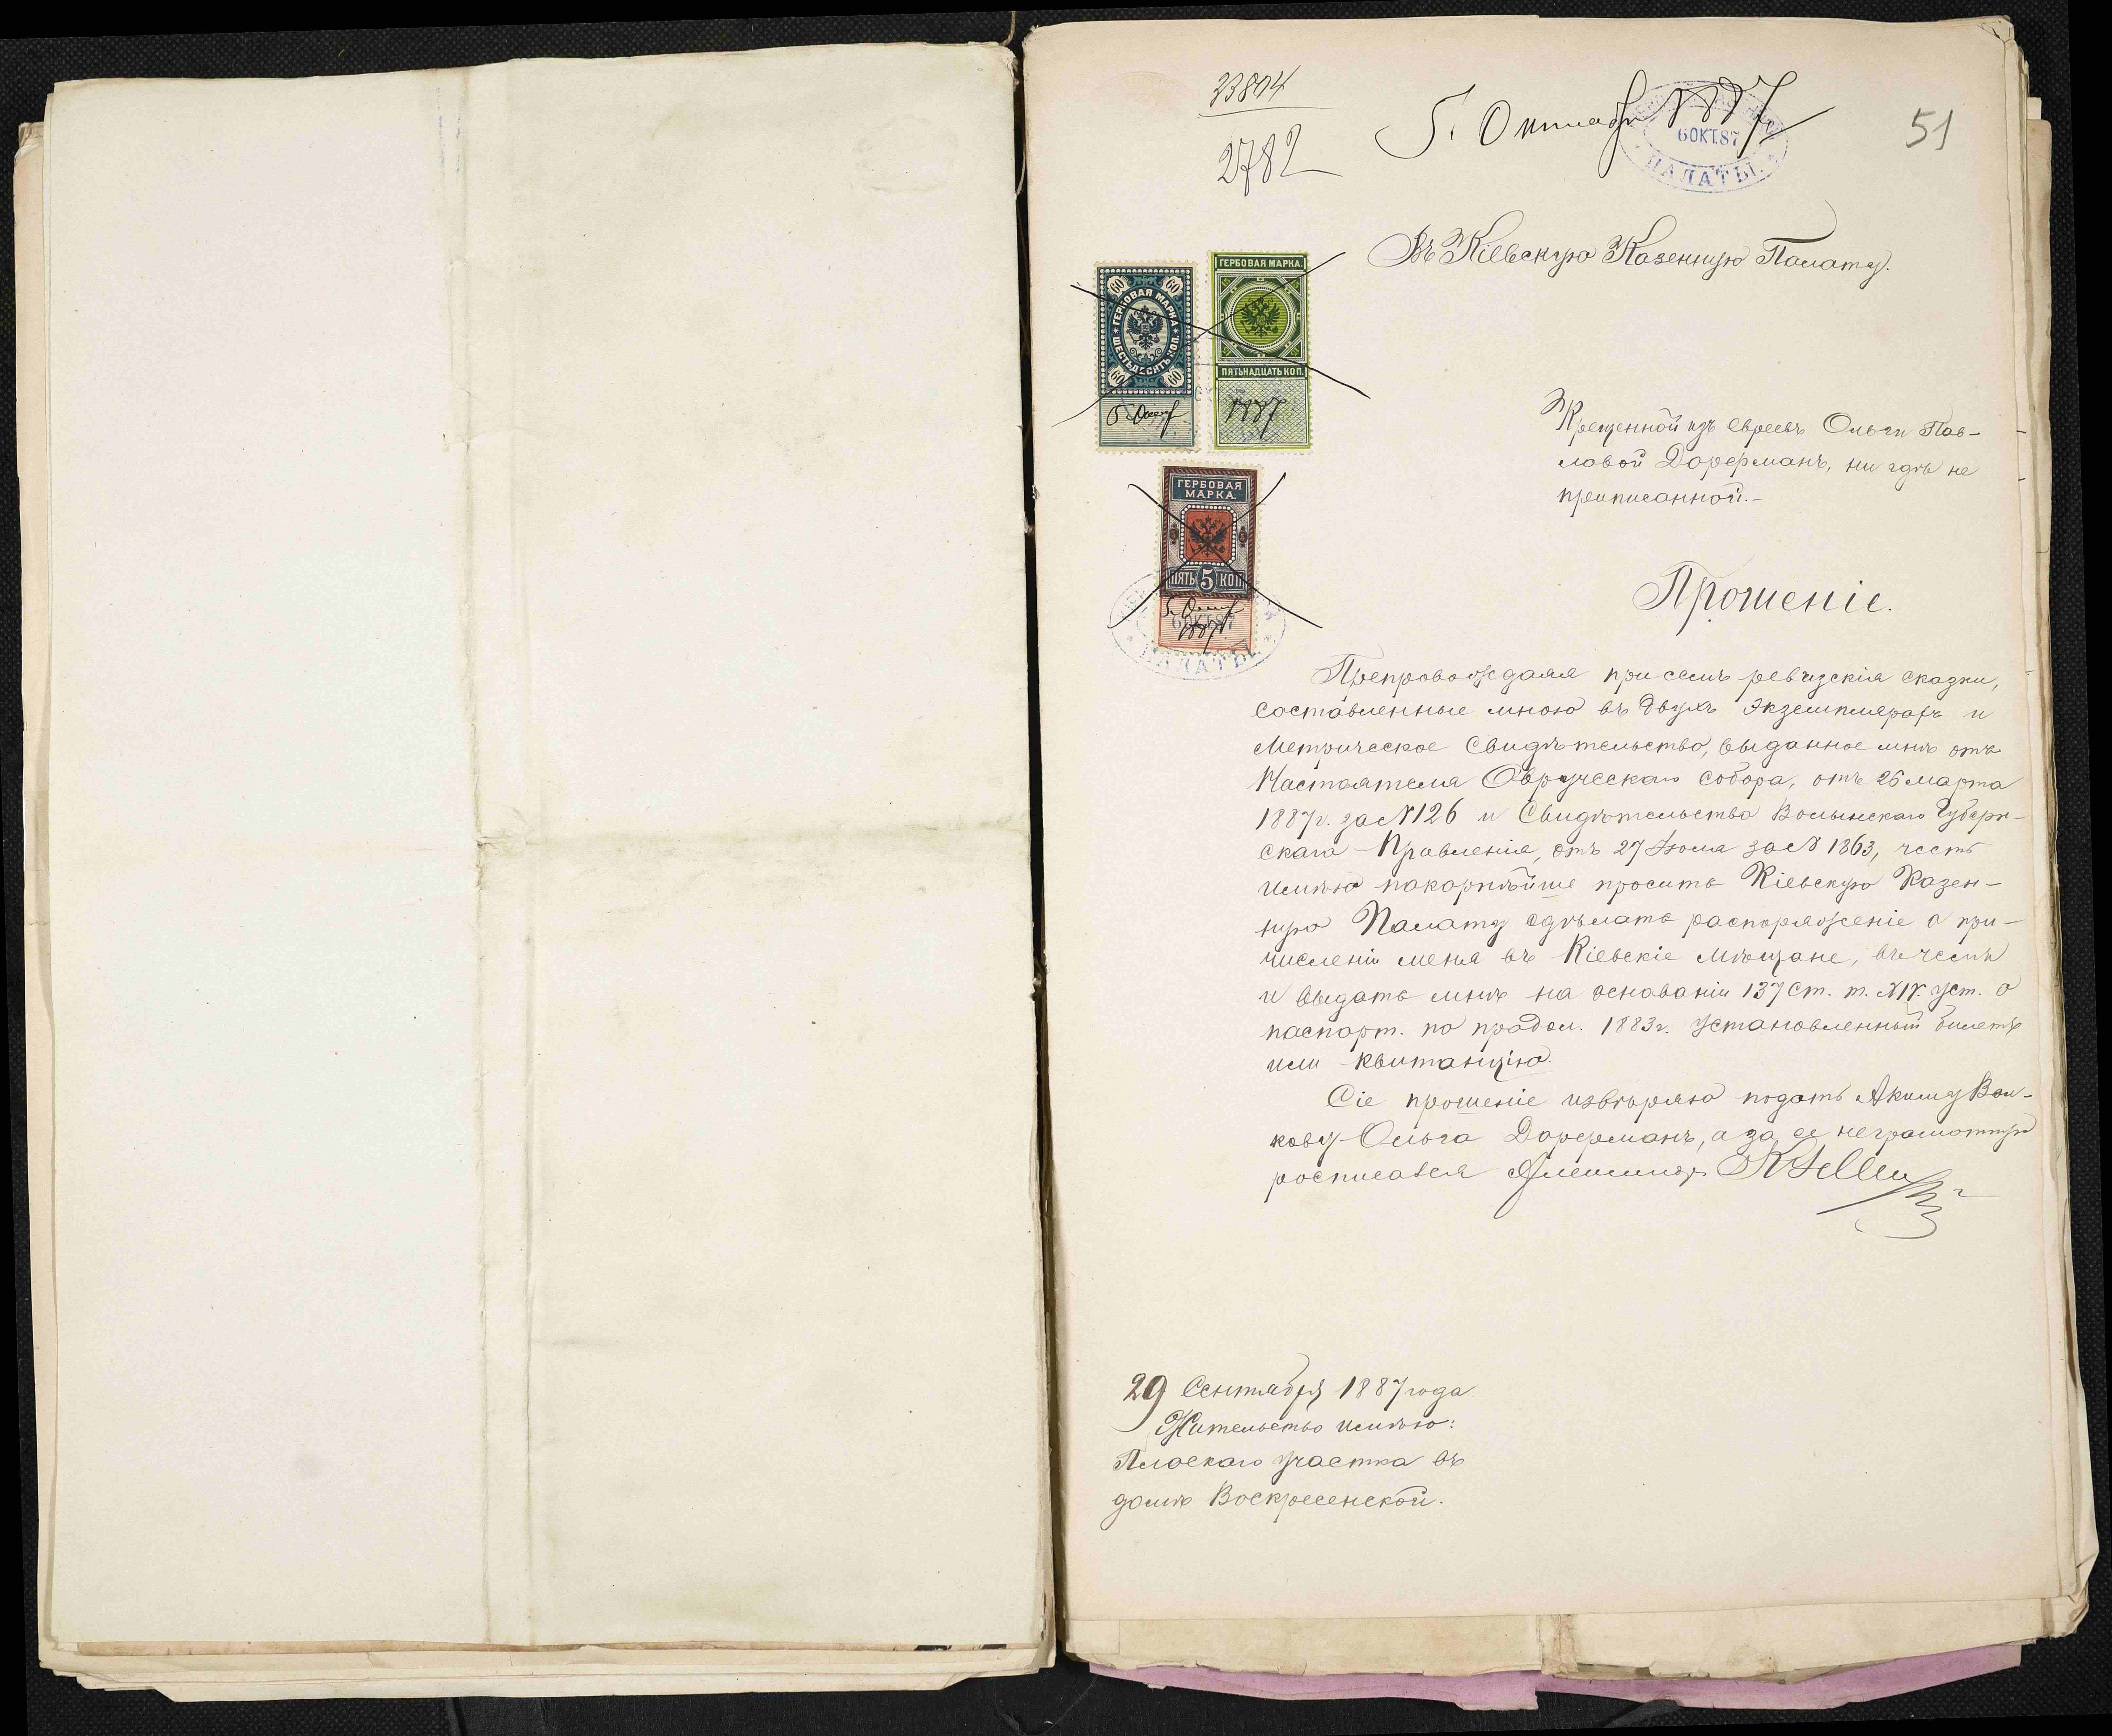 23804
2782
5. Октября 1887
6 ОКТ.87
ПАЛАТЫ
51
Въ Кіевскую Казенную Палату.
60 60
ГЕРБОВАЯ МАРКА
ШЕСТЬДЕСЯТЪ КОП.
60 60
5. Октяб
ГЕРБОВАЯ МАРКА.
ПЯТЬНАДЦАТЬ КОП.
1887
Крещенной изъ евреевъ Ольги Пав-
ловой Дорфманъ, ни гдѣ не
приписанной.-
ГЕРБОВАЯ
МАРКА.
ПЯТЬ 5 КОП.
5. Октяб
6 ОКТ.87
1887
ПАЛАТЫ
Прошеніе.
Препровождая при семъ ревизскія сказки,
составленные мною въ двухъ экземплярахъ и
Метрическое Свидѣтельство, выданное мнѣ отъ
Настоятеля Овручскаго собора, отъ 26 марта
1887 г. за № 126 и Свидѣтельства Волынскаго Губерн-
скаго Правленія, отъ 27 Іюля за № 1863, честь
имѣю покорнѣйше просить Кіевскую Казен-
ную Палату сдѣлать распоряженіе о при-
численіи меня въ Кіевскіе Мѣщане, въ чемъ
и выдать мнѣ на основаніи 137 ст. т. XIV. уст. о
паспорт. по продол. 1883 г. установленный билетъ
или квитанцію.
Сіе прошеніе ввѣряю подать Акиму Вол-
кову Ольга Дорфманъ, а за ее неграмотную
росписался
29 Сентября 1887 года
Жительство имѣю:
Плоскаго участка въ
домѣ Воскресенской.